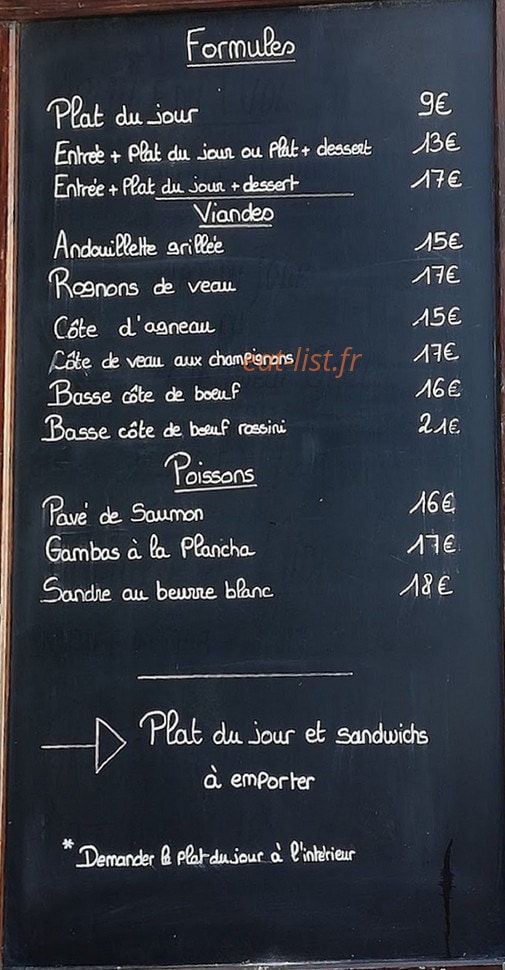 Formules
Plat du jour 9€
Entrée + Plat du jour ou Plat + dessert 13€
Entrée + Plat du jour + dessert 17€
Viandes
Andouillette grillée 15€
Rognons de veau 17€
Côte d'agneau 15€
Côte de veau aux champignons 17€
eat-list.fr
Basse côte de boeuf 16€
Basse côte de boeuf rossini 21€
Poissons
Pavé de Saumon 16€
Gambas à la Plancha 17€
Sandre au beurre blanc 18€
Plat du jour et sandwichs
à emporter
* Demander le plat du jour à l'intérieur